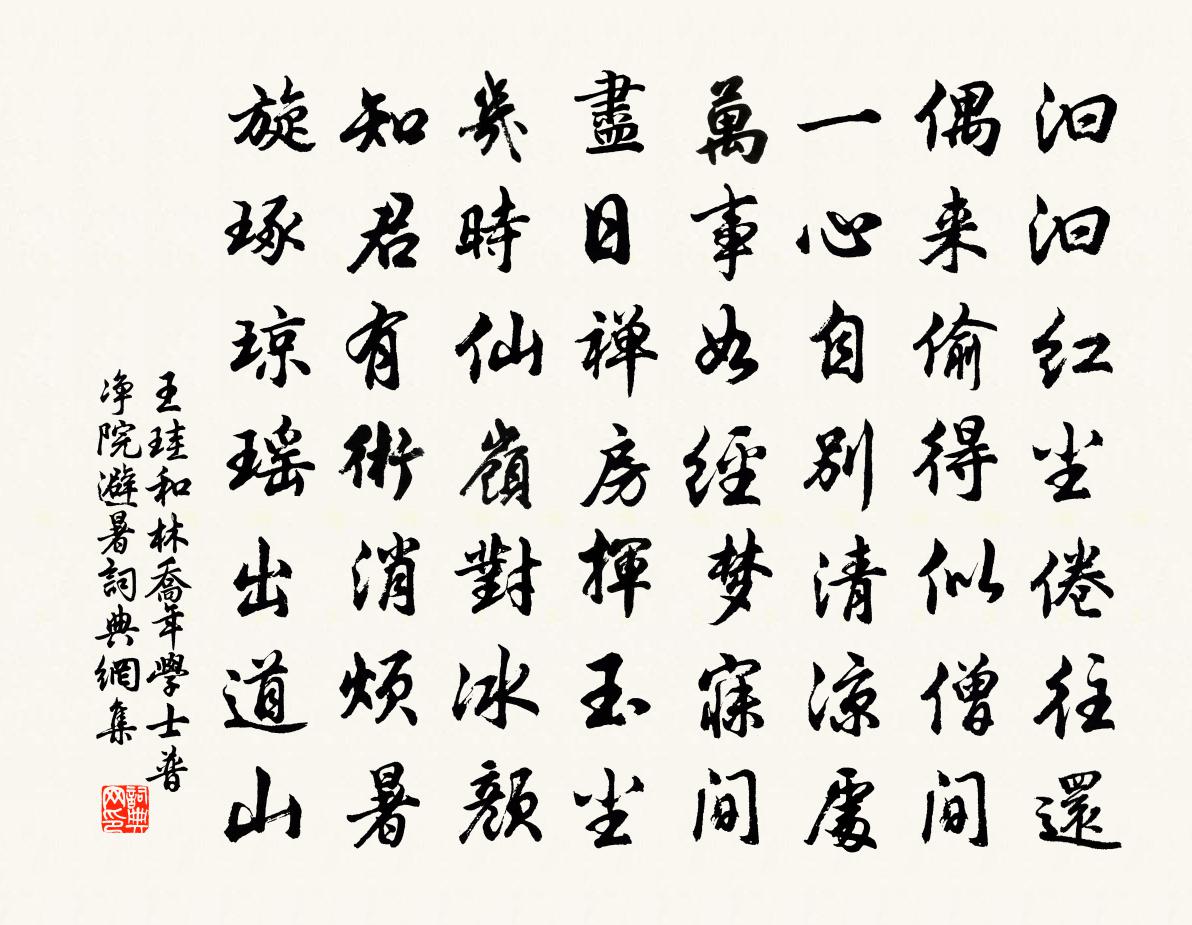 汩汩红尘倦往還
偶来偷得似僧间
一心自别清凉處
萬事如經梦寐间
盡日禅房揮玉尘
幾時仙嶺對冰顏
知君有術消煩暑
旋琢琼瑶出道山
王珪和林喬年學士普
净院避暑詞典網集
詞典
网印